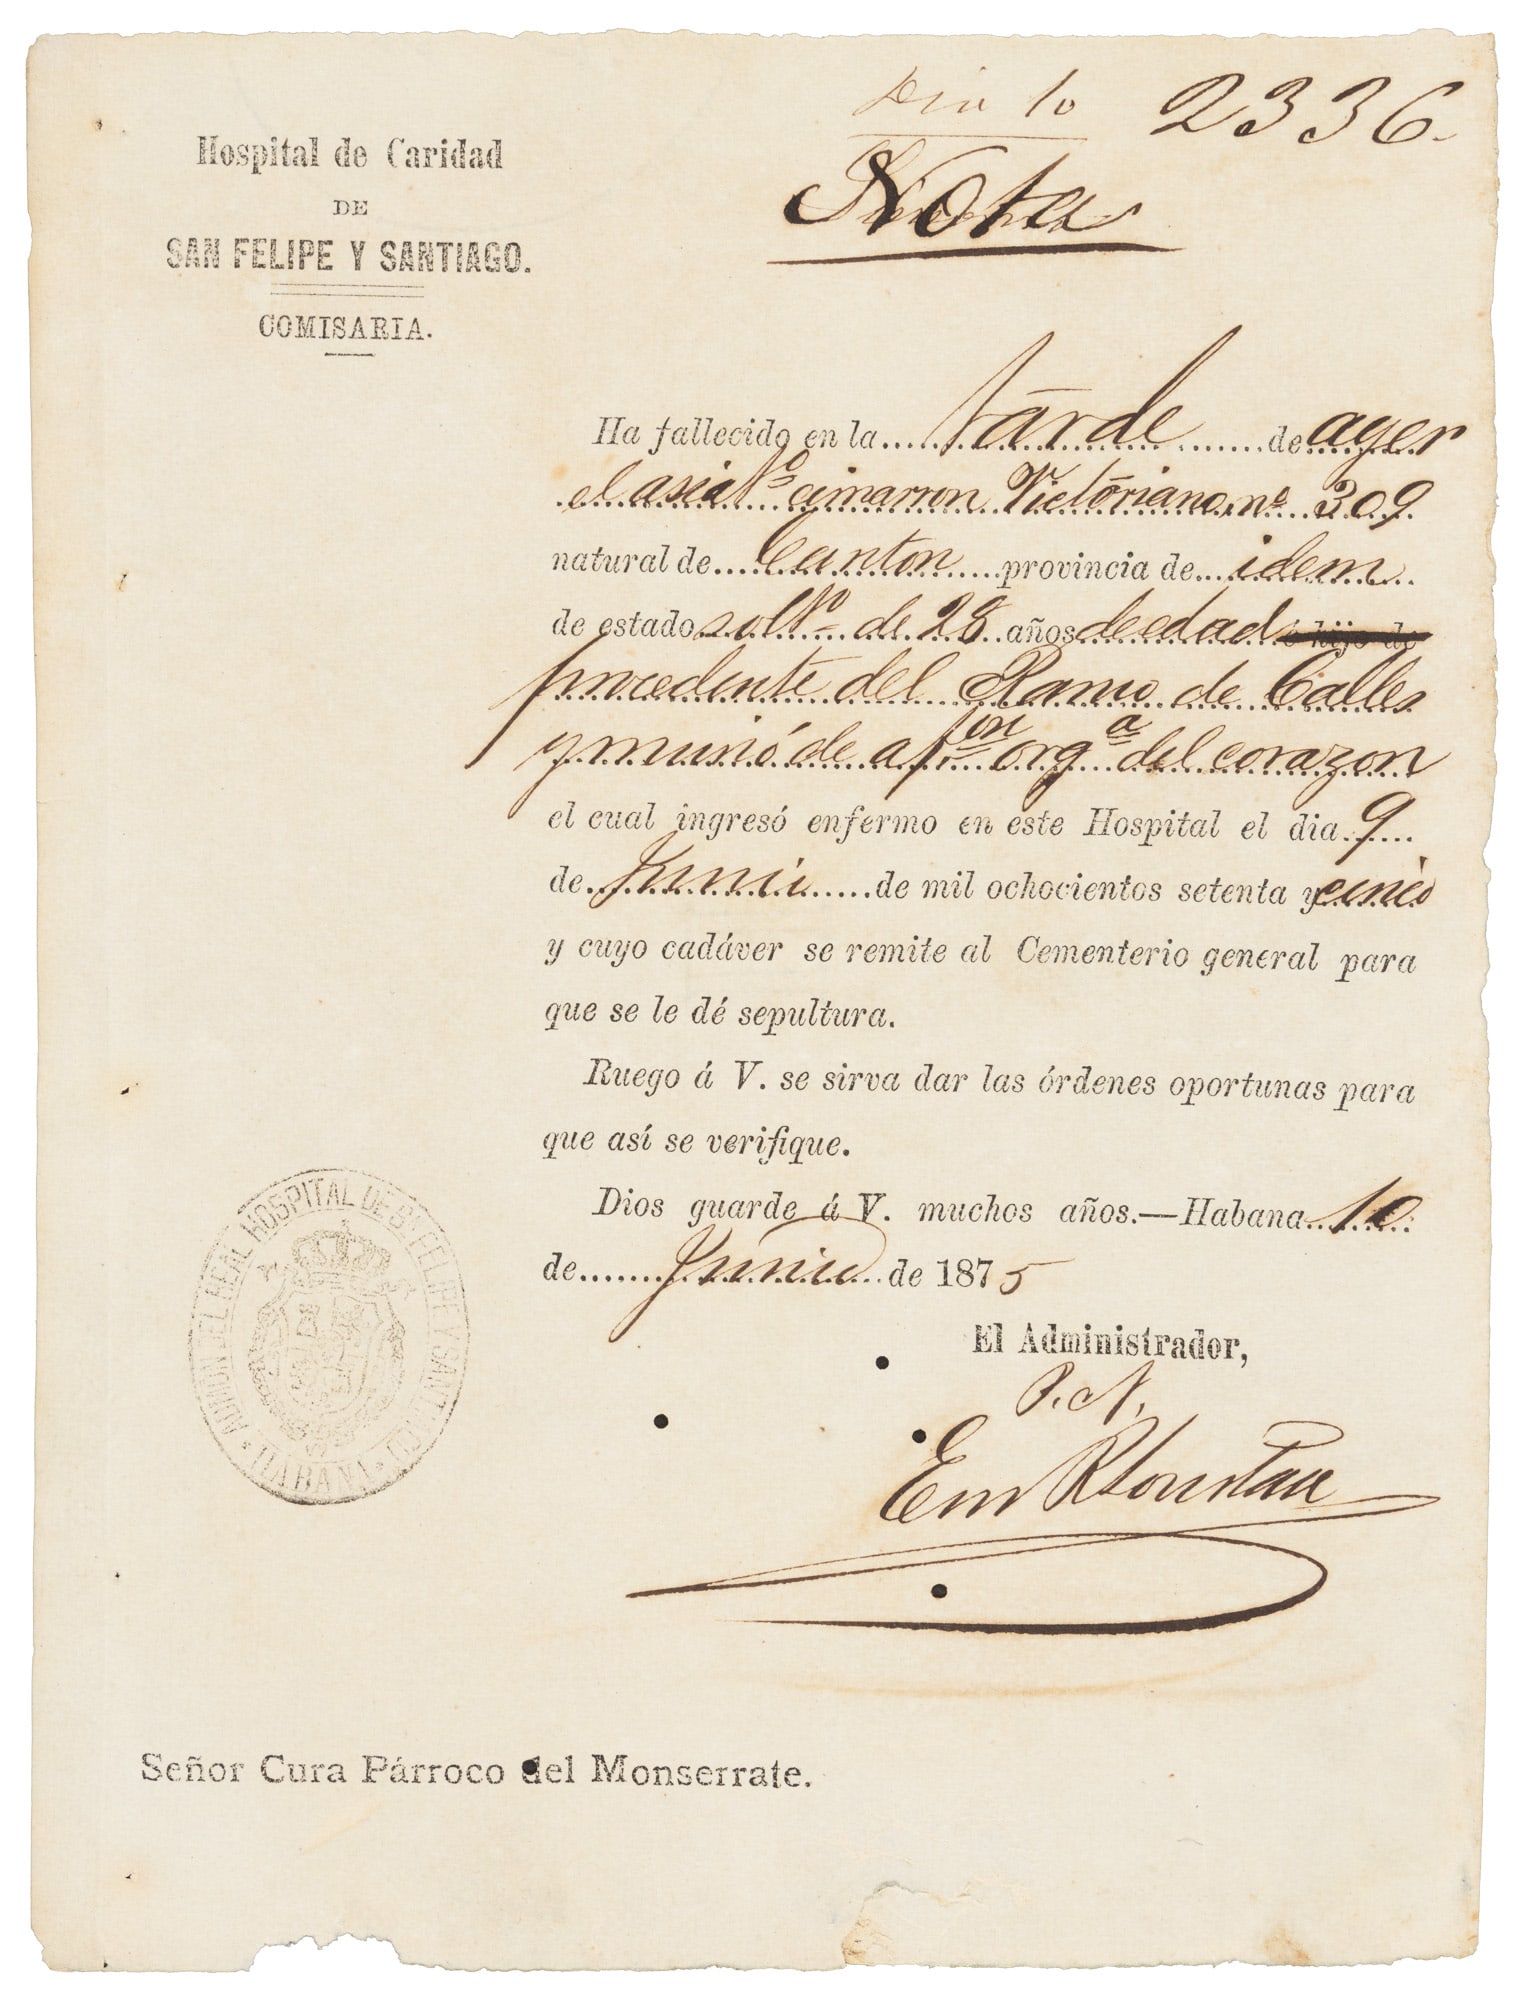 Dia 10 2336
Nota
Hospital de Caridad
DE
SAN FELIPE Y SANTIAGO.
COMISARIA.
Ha fallecido en la tarde de ayer
el asiátᶜᵒ cimarron Victoriano, nº 309
natural de Canton provincia de idem
de estado soltº de 28 años de edad é hijo de
procedente del Ramo de Calles
y murió de afᵒⁿ orgᵃ del corazon
el cual ingresó enfermo en este Hospital el dia 9
de Junio de mil ochocientos setenta y cinco
y cuyo cadáver se remite al Cementerio general para
que se le dé sepultura.
Ruego á V. se sirva dar las órdenes oportunas para
que así se verifique.
Dios guarde á V. muchos años.—Habana 10
de Junio de 1875
El Administrador,
Em
ADMON DEL REAL HOSPITAL DE Sn FELIPE Y SANTIAGO
HABANA
Señor Cura Párroco del Monserrate.